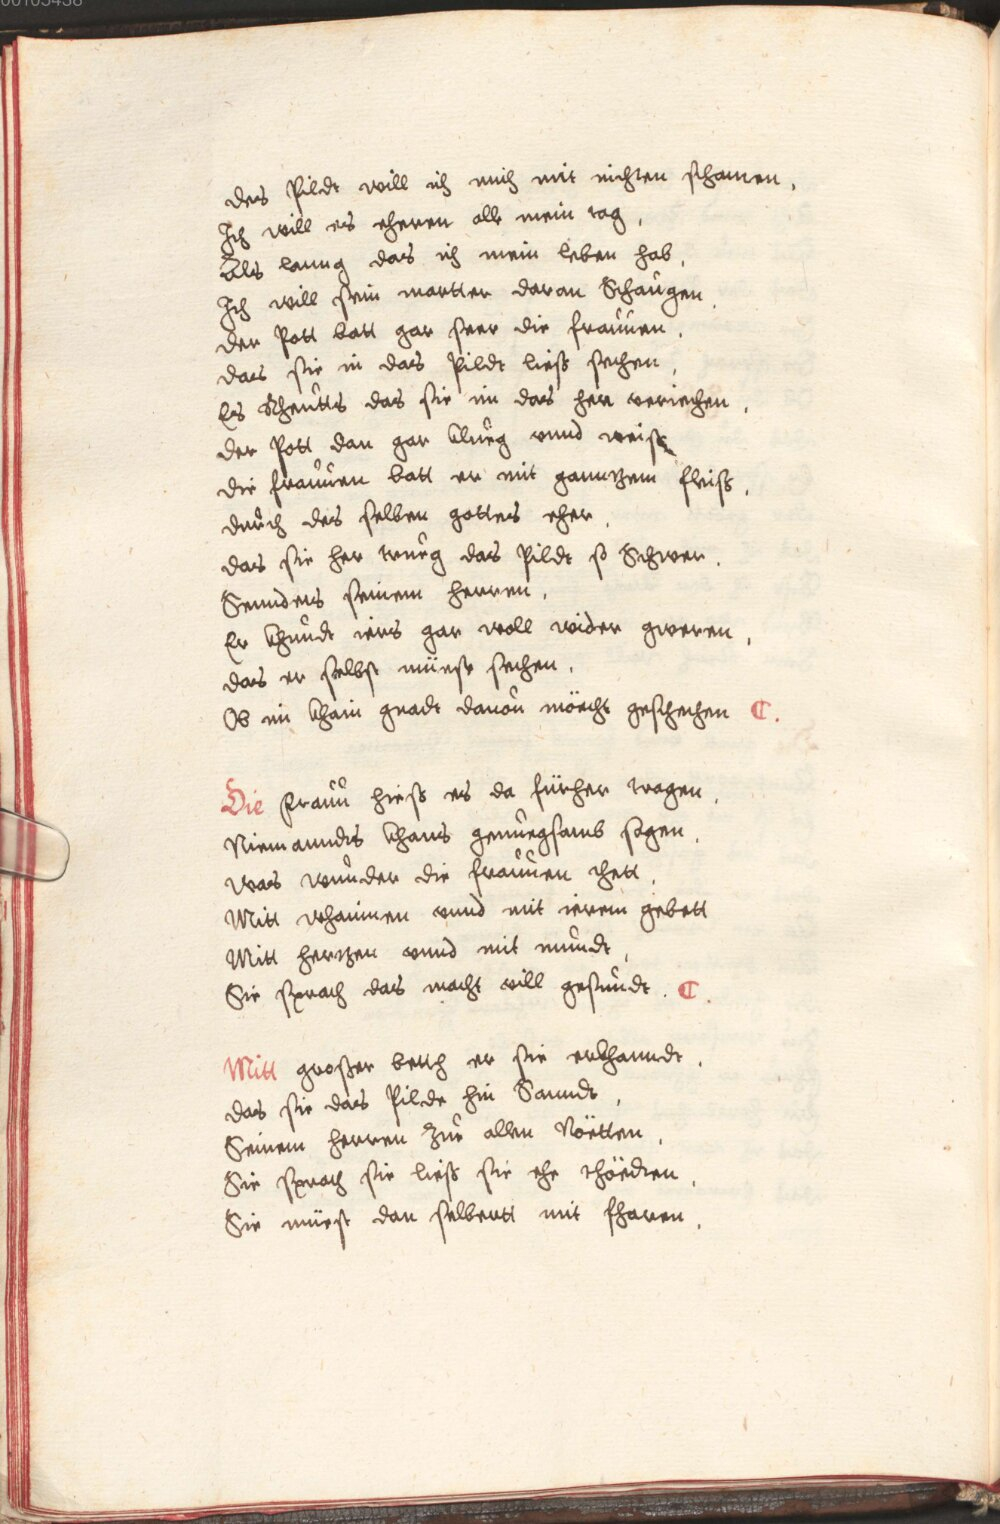 00105438
des Pildt will ich mich mit nichten schamen,
Ich will es eheren alle mein tag,
Als lanng das ich mein leben hab,
Ich will sein martter daran Schaugen,
der Pott batt gar seer die frauuen,
das sie in das Pildt ließ sechen,
Es Kheutts das sie im das her veriechen,
der Pott dan gar klueg vnnd weiß
die frauuen batt er mit ganntzem fleiß,
durch des selben gottes eher,
das sie her trueg das Pildt so Schwer,
Sennders seinem herren,
Er khundt iers gar woll wider gweren,
das er selbst müesse sechen,
Ob im khain gnadt dauon möecht geschechen C.
Die frauu hieß es da fürher tragen,
Niemanndts khans genuegsamb sagen,
was wunder die frauuen thett,
Mitt whainen vnnd mit ierem gebett
Mitt hertzen vnnd mit mundt,
Sie sprach das macht vill gesundt. C.
Mitt großer betth er sie erkhanndt,
das sie das Pilde hin Sanndt,
Seinem herren Zue allen Nöetten,
Sie sprach sie ließ sie ehe thöedten,
Sie müest dan selbertt mit fharen,